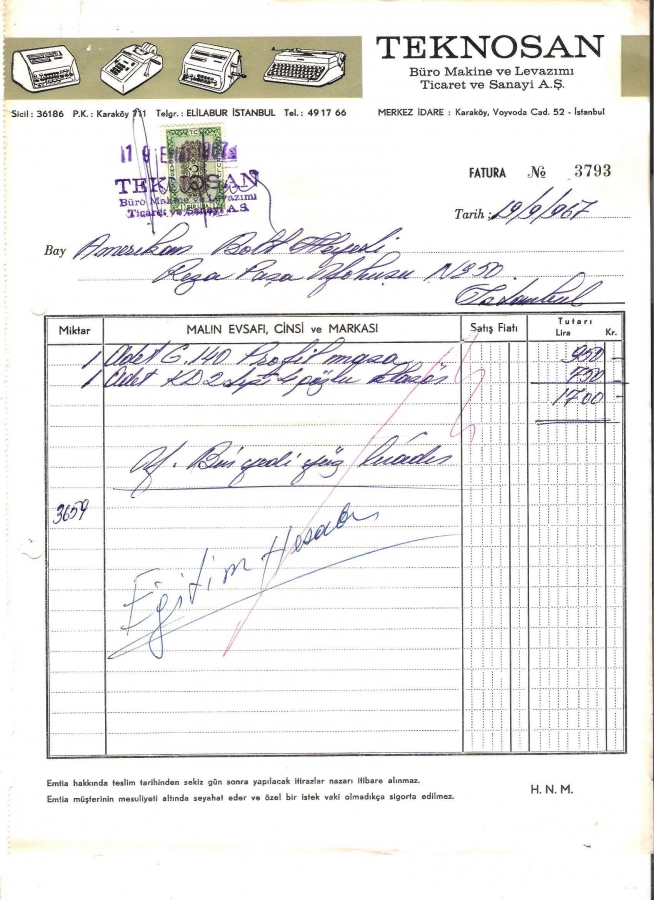 TEKNOSAN
Büro Makine ve Levazımı
Ticaret ve Sanayi A.Ş.
Sicil : 36186 P.K. : Karaköy 711 Telgr. : ELİLABUR İSTANBUL Tel. : 49 17 66
MERKEZ İDARE : Karaköy, Voyvoda Cad. 52 - İstanbul
19 1967
TEKNOSAN
Büro Makine ve Levazımı
Ticaret ve Sanayi A.Ş.
FATURA № 3793
Tarih : 19/9/967
Bay Amerikan Bord Heyeti
Rıza Paşa Yokuşu N 50
İstanbul
Miktar MALIN EVSAFI, CİNSİ ve MARKASI Satış Fiatı Tutarı
Lira Kr.
1 Adet G. 140 Profil masa 950 -
1 Adet KD 2 4 gözlü klasör 750 -
1700 -
Yf. Bin yedi yüz liradır
3659
Eğitim Hesabı
Emtia hakkında teslim tarihinden sekiz gün sonra yapılacak itirazlar nazarı itibare alınmaz.
Emtia müşterinin mesuliyeti altında seyahat eder ve özel bir istek vaki olmadıkça sigorta edilmez.
H. N. M.